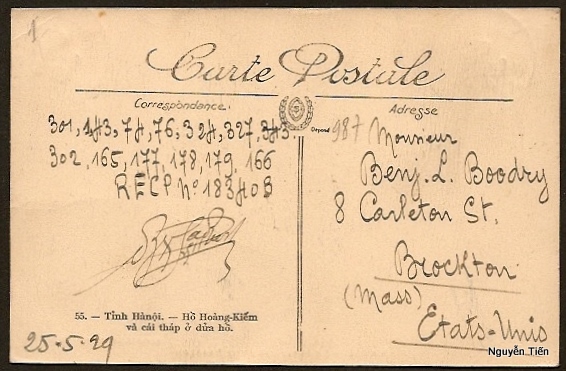 1
Carte Postale
Correspondance.
301, 143, 74, 76, 324, 327, 343
302, 165, 177, 178, 179, 166
RECP Nº 18340B
55. — Tỉnh Hànội. — Hồ Hoàng-Kiếm
và cái tháp ở dửa hồ.
25-5-29
Déposé
Adresse
987 Monsieur
Benj. L. Boodry
8 Carleton St.
Brockton
(Mass)
Etats-Unis
Nguyễn Tiến